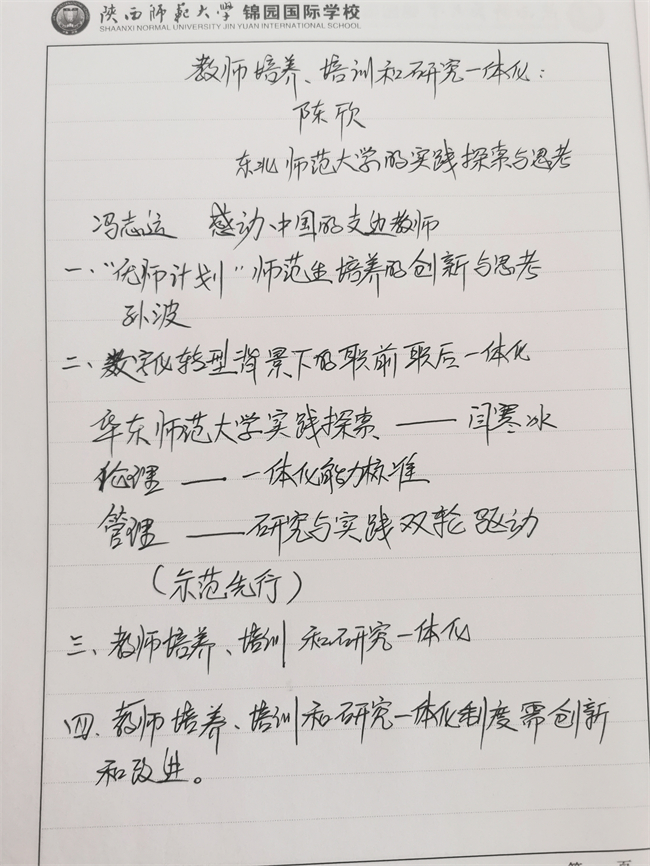 陕西师范大学 锦园国际学校
SHAANXI NORMAL UNIVERSITY JIN YUAN INTERNATIONAL SCHOOL
教师培养、培训和研究一体化:
陈欣
东北师范大学的实践探索与思考
冯志远 感动中国的支边教师
一、“优师计划”师范生培养的创新与思考
孙波
二、数字化转型背景下的职前职后一体化
华东师范大学实践探索——闫寒冰
伦理——一体化能力标准
管理——研究与实践双轮驱动
(示范先行)
三、教师培养、培训和研究一体化
四、教师培养、培训和研究一体化制度需创新
和改进。